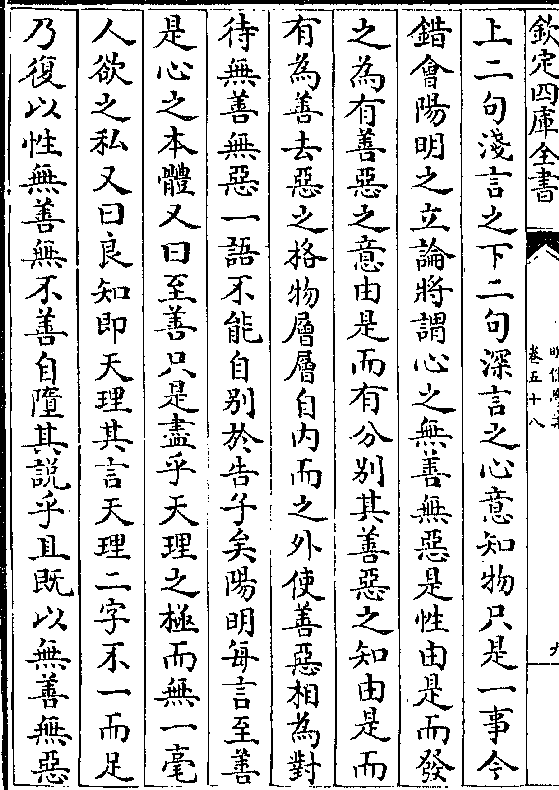 欽定四庫全書
卷五十八
九
上二句淺言之下二句深言之心意知物只是一事今
錯會陽明之立論將謂心之無善無惡是性由是而發
之為有善惡之意由是而有分别其善惡之知由是而
有為善去惡之格物層層自内而之外使善惡相為對
待無善無惡一語不能自别於告子矣陽明每言至善
是心之本體又曰至善只是盡乎天理之極而無一毫
人欲之私又曰良知即天理其言天理二字不一而足
乃復以性無善無不善自墮其説乎且既以無善無惡